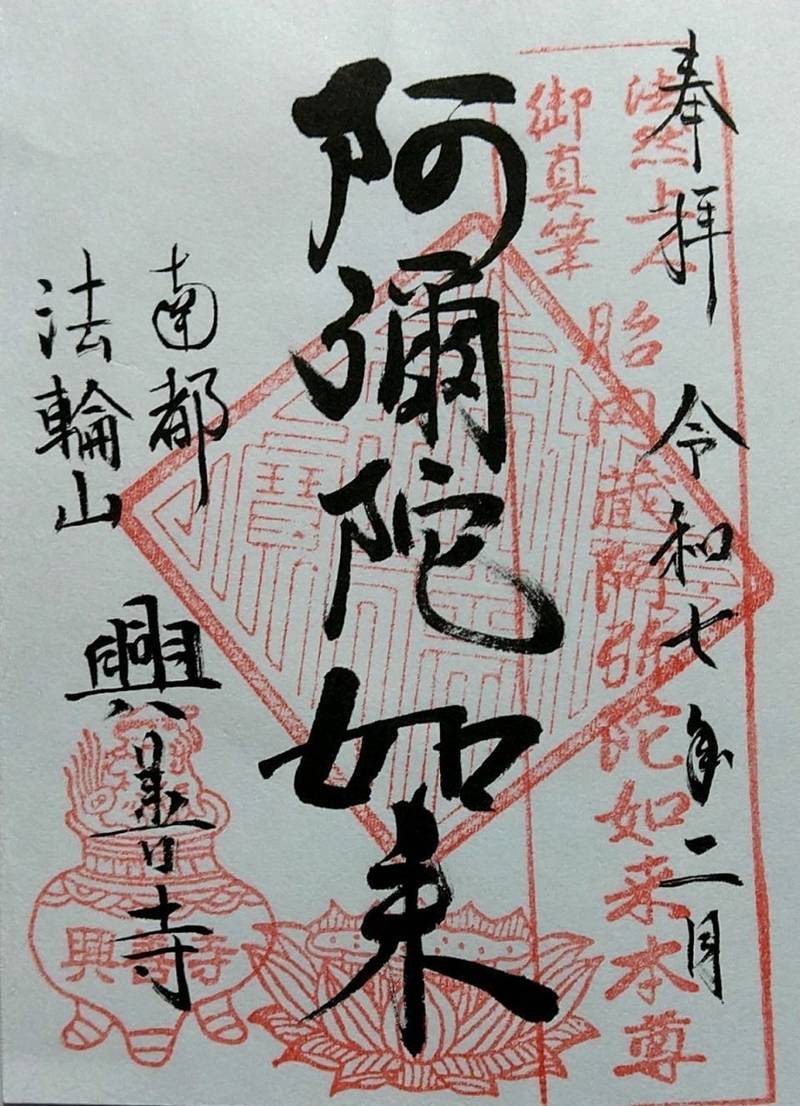 奉拝 令和七年二月
法然上人
御真筆
胎内蔵阿弥陀如来本尊
阿彌陀如来
南都
法輪山
興善寺
興善寺